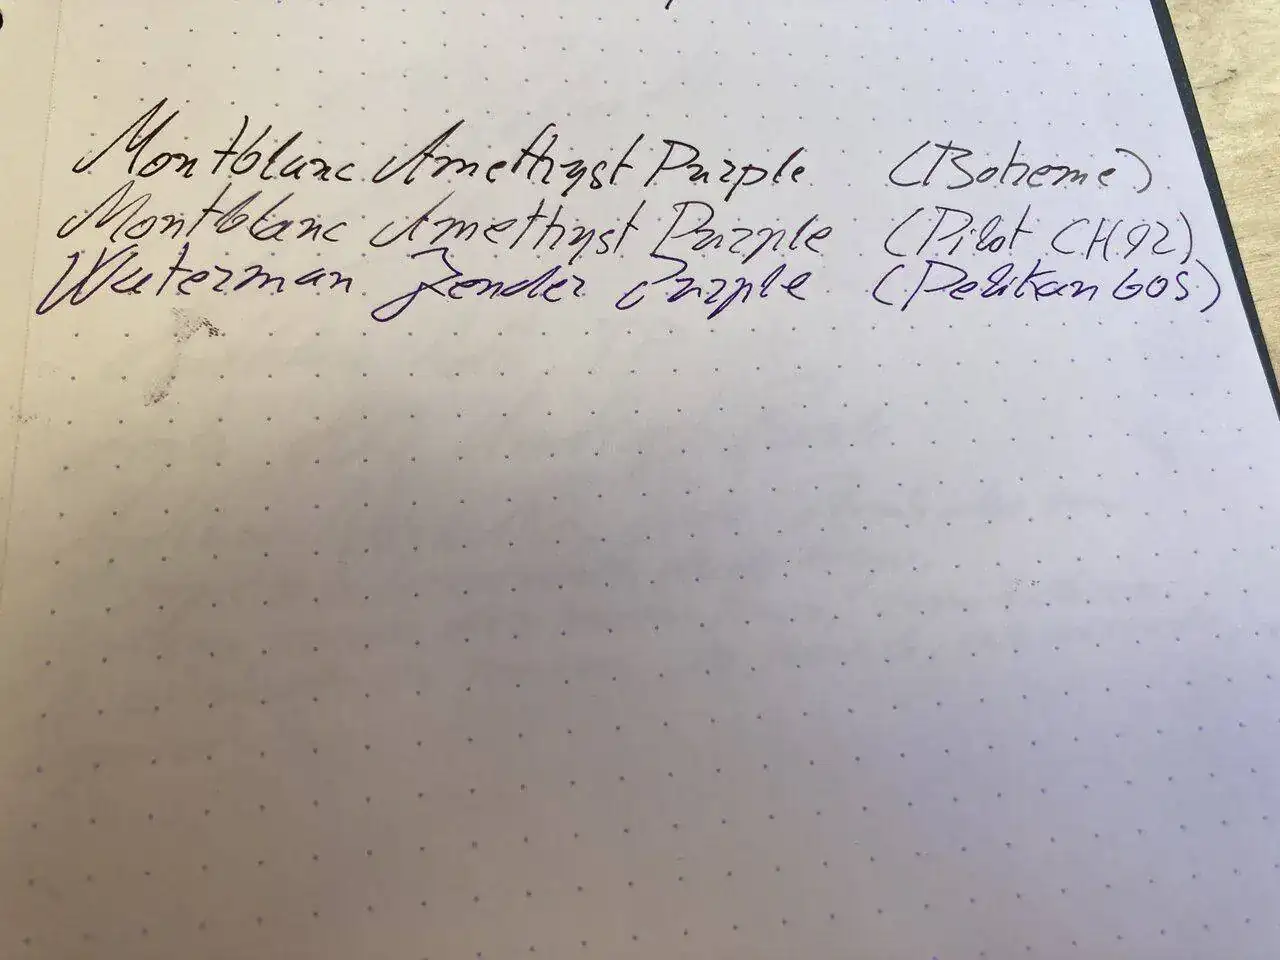 Montblanc Amethyst Purple (Boheme)
Montblanc Amethyst Purple (Pilot CH92)
Waterman Tender Purple (Pelikan 605)